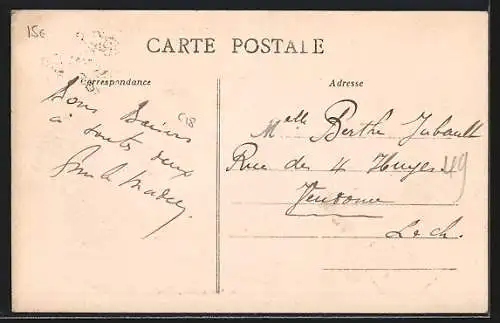 15€
CARTE POSTALE
Correspondance
Adresse
Bons Baisers
à toutes deux
C18
Melle Berthe Jubault
Rue des 4 Huyes 49
Vendome
L et Ch.